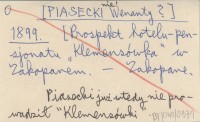 nie!
[PIASECKI Wenanty?]
1899. [Prospekt hotelu-pen-
sjonatu „Klemensówka" w
Zakopanem. – Zakopane.
Piasecki już wtedy nie pro-
wadził "Klemensówki